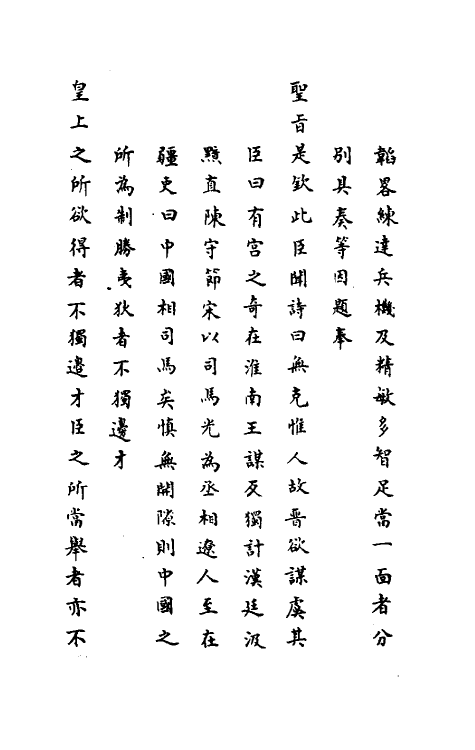 韜畧練達兵機及精敏多智足當一面者分
别具奏等因題奉
聖旨是欽此臣聞詩曰無克惟人故晋欲謀虞其
臣曰有宫之奇在淮南王謀反獨計漢廷汲
黯直陳守節宋以司馬光為丞相遼人至在
疆吏曰中國相司馬矣慎無開隙則中國之
所為制勝夷狄者不獨邊才
皇上之所欲得者不獨邊才臣之所當舉者亦不